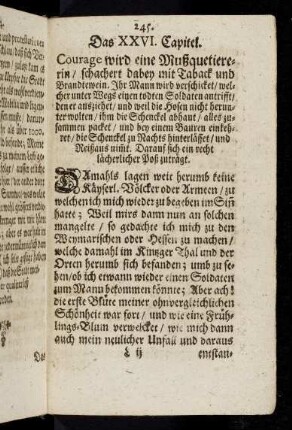 245.
Das XXVI. Capitel.
Courage wird eine Mußquetiere-
rin/ schachert dabey mit Taback und
Brandtewein. Ihr Mann wird verschicket/ wel-
cher unter Wegs einen todten Soldaten antrifft/
den er ausziehet/ und weil die Hosen nicht herun-
ter wolten/ ihm die Schenckel abhaut/ alles zu-
sammen packet/ und bey einem Bauren einkeh-
ret/ die Schenckel zu Nachts hinterlässet/ und
Reißaus nimt. Darauf sich ein recht
lächerlicher Poß zuträgt.
DAmahls lagen weit herumb keine
Käyserl. Völcker oder Armeen/ zu
welchen ich mich wieder zu begeben im Siñ
hatte; Weil mirs dann nun an solchen
mangelte/ so gedachte ich mich zu den
Weymarischen oder Hessen zu machen/
welche damahl im Kintzger Thal und der
Orten herumb sich befanden; umb zu se-
hen/ ob ich etwann wieder einen Soldaten
zum Mann bekommen könnte; Aber ach!
die erste Blüte meiner ohnvergleichlichen
Schönheit war fort/ und wie eine Früh-
lings-Blum verwelcket/ wie mich dann
auch mein neulicher Unfall und daraus
L ij entstan-